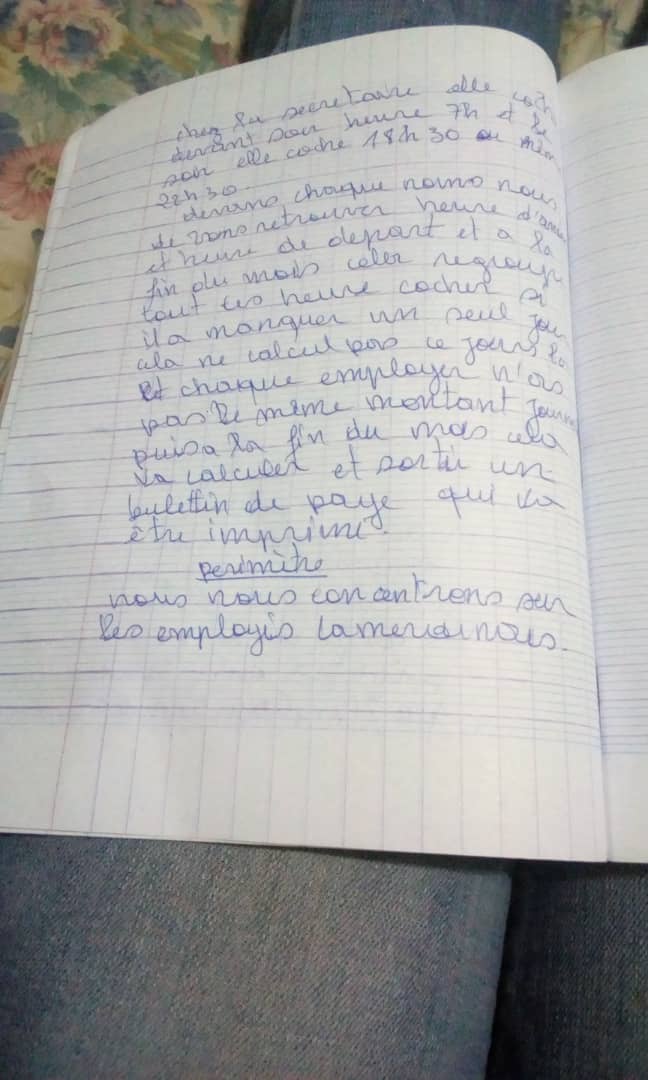 chez la secretaire elle coch
devant son heure 7h et le
soir elle coche 18h30 ou mêm
22h30.
devans chaque noms nous
devons retrouver heure d'arri
et heure de depart et a la
fin du mois celer regroup
tout les heure cocher si
il a manquer un seul jour
cela ne calcul pas ce jours la
Et chaque employer n'as
pas le même montant journ
puis a la fin du mos cela
va calculer et sortir un
bulettin de paye qui va
être imprimé.
perimètre
nous nous concentrons sur
les employés camerounais.